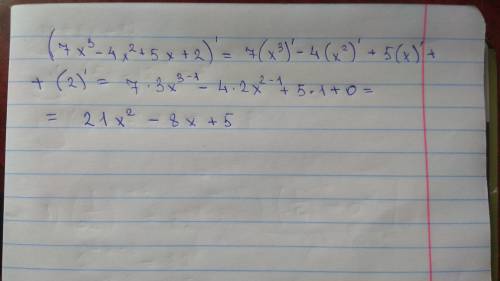 (7x³ - 4x² + 5x + 2)' = 7(x³)' - 4(x²)' + 5(x)' +
+ (2)' = 7 · 3x³⁻¹ - 4 · 2x²⁻¹ + 5 · 1 + 0 =
= 21x² - 8x + 5